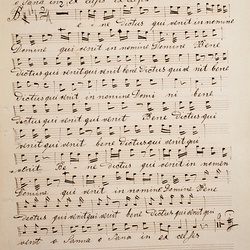 o Sana in ex celsis ex celsis
Be ne dictus qui venit in nomine
Domine qui venit in nomine Domine Bene
dictus qui venit qui venit bene dictus qui ve nit bene
dictus qui venit in nomine Domi ni bene
dictus qui venit qui venit Bene dictus qui
venit qui venit bene dictus qui venit qui
venit Be ne dictus qui venit in nomen
Domine qui venit in nomine Domine Bene
dictus qui venit qui venit bene dictus qui venit qui
venit o Sanna o Sana in ex celsis